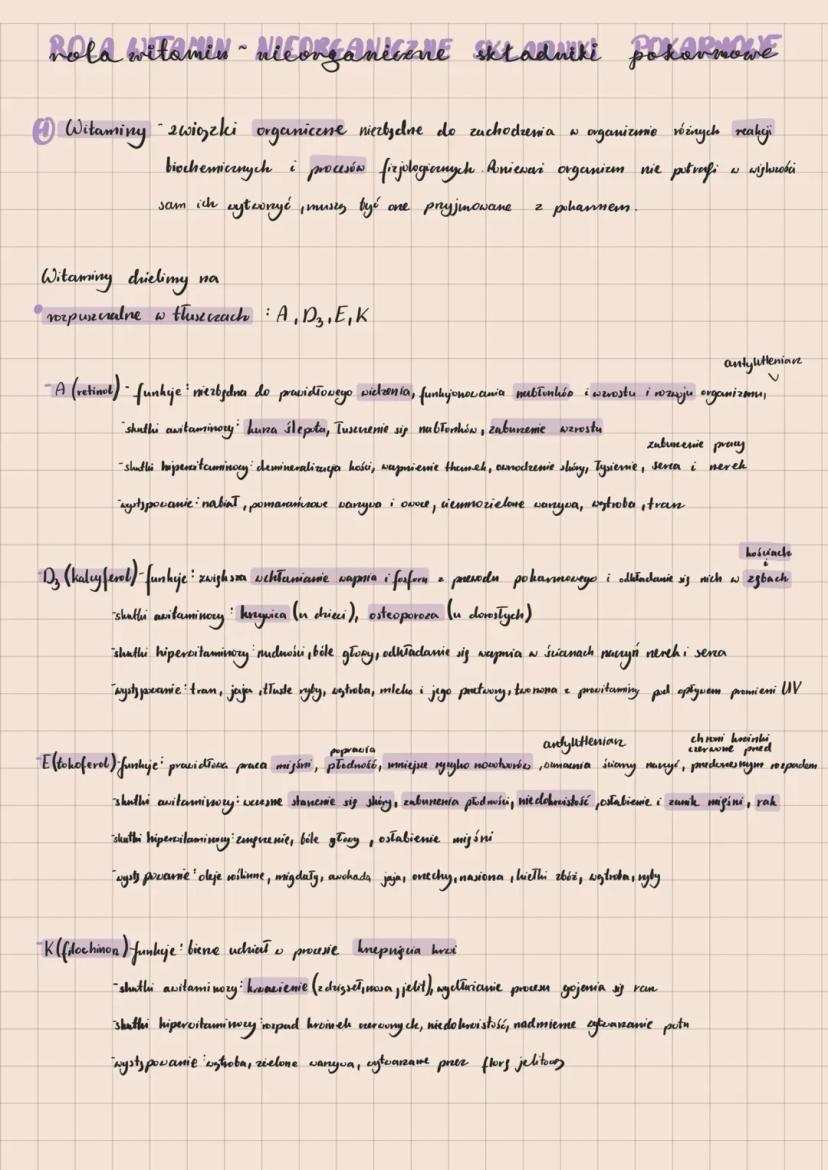 ROLA WITAMIN - NIEORGANICZNE SKŁADNIKI POKARMOWE
rola witamin - nieorganiczne składniki pokarmowe
1 Witaminy - związki organiczne niezbędne do zachodzenia w organizmie różnych reakcji
biochemicznych i procesów fizjologicznych. Ponieważ organizm nie potrafi w większości
sam ich wytworzyć, muszą być one przyjmowane z pokarmem.
Witaminy dzielimy na
• rozpuszczalne w tłuszczach : A, D3, E, K
antyutleniacz
- A (retinol) - funkcje: niezbędna do prawidłowego widzenia, funkcjonowania nabłonków i wzrostu i rozwoju organizmu,
- skutki awitaminozy: kurza ślepota, łuszczenie się nabłonków, zaburzenie wzrostu
zaburzenie pracy
- skutki hiperwitaminozy: demineralizacja kości, wapnienie tkanek, owrzodzenie skóry, łysienie, serca i nerek
- występowanie: nabiał, pomarańczowe warzywa i owoce, ciemnozielone warzywa, wątroba, tran
kościach
i
- D3 (kalcyferol) - funkcje: zwiększa wchłanianie wapnia i fosforu z przewodu pokarmowego i odkładanie się nich w zębach
- skutki awitaminozy: krzywica (u dzieci), osteoporoza (u dorosłych)
- skutki hiperwitaminozy: nudności, bóle głowy, odkładanie się wapnia w ścianach naczyń nerek i serca
- występowanie: tran, jaja, tłuste ryby, wątroba, mleko i jego przetwory, tworzona z prowitaminy pod wpływem promieni UV
poprawia antyutleniacz chroni krwinki
czerwone przed
- E (tokoferol) - funkcje: prawidłowa praca mięśni, płodność, mniejsze ryzyko nowotworów, wzmacnia ściany naczyń, przedwczesnym rozpadem
- skutki awitaminozy: wczesne starzenie się skóry, zaburzenia płodności, niedokrwistość, osłabienie i zanik mięśni, rak
- skutki hiperwitaminozy: zmęczenie, bóle głowy, osłabienie mięśni
- występowanie: oleje roślinne, migdały, awokado, jaja, orzechy, nasiona, kiełki zbóż, wątroba, ryby
- K (filochinon) - funkcje: bierze udział w procesie krzepnięcia krwi
- skutki awitaminozy: krwawienie (z dziąseł, nosa, jelit), wydłużanie procesu gojenia się ran
- skutki hiperwitaminozy: rozpad krwinek czerwonych, niedokrwistość, nadmierne wytwarzanie potu
- występowanie: wątroba, zielone warzywa, wytwarzane przez florę jelitową